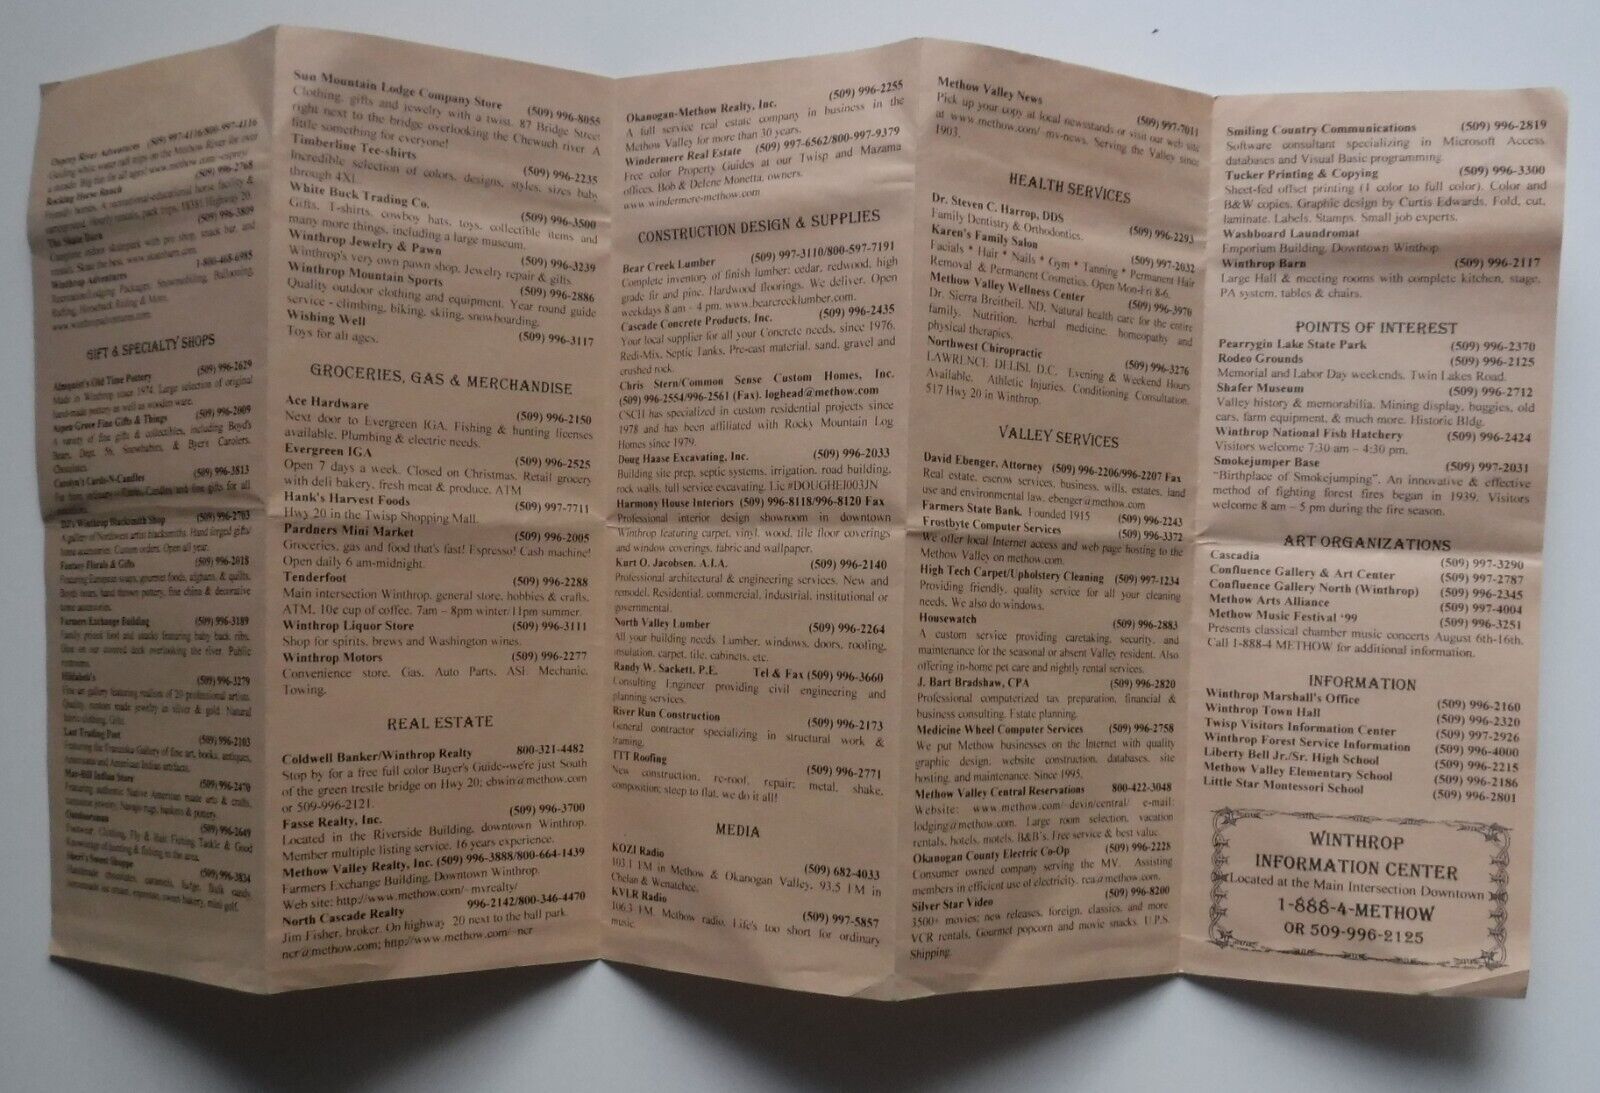 Osprey River Adventures (509) 997-4116/800-997-4116
Guiding white water raft trips on the Methow River for over
a decade. Big fun for all ages! www.methow.com/~osprey/
Rocking Horse Ranch (509) 996-2768
Friendly horses. A recreational-educational horse facility &
campground. Hourly rentals, pack trips. 18381 Highway 20.
The Skate Barn (509) 996-3809
Complete indoor skatepark with pro shop, snack bar, and
Skate the best. www.skatebarn.com
Winthrop Adventures 1-800-468-6985
Recreation/Lodging Packages. Snowmobiling, Ballooning,
Rafting, Horseback Riding & More.
www.winthropadventures.com
GIFT & SPECIALTY SHOPS
Almquist's Old Time Pottery (509) 996-2629
Made in Winthrop since 1974. Large selection of original
hand-made pottery as well as wooden ware.
Aspen Grove Fine Gifts & Things (509) 996-2009
A variety of fine gifts & collectibles, including Boyd's
Bears, Dept. 56, Snowbabies, & Byer's Carolers.
Chocolates.
Carolyn's Cards-N-Candles (509) 996-3813
Candles and fine gifts for all
DJ's Winthrop Blacksmith Shop (509) 996-2703
A gallery of Northwest artist blacksmiths. Hand forged gifts/
home accessories. Custom orders. Open all year.
Fantasy Florals & Gifts (509) 996-2018
Featuring European soaps, gourmet foods, afghans, & quilts.
hand thrown pottery, fine china & decorative
home accessories.
Farmers Exchange Building (509) 996-3189
Family priced food and snacks featuring baby back ribs.
Dine on our covered deck overlooking the river. Public
restrooms.
Hildabob's (509) 996-3279
Fine art gallery featuring realism of 20 professional artists.
Quality, custom made jewelry in silver & gold. Natural
fabric clothing. Gifts.
Last Trading Post (509) 996-2103
Featuring the Gallery of fine art, books, antiques,
Americana and American Indian artifacts.
Mar-Bill Indian Store (509) 996-2470
Featuring authentic Native American made arts & crafts,
turquoise jewelry, Navajo rugs, baskets & pottery.
Outdoorsman (509) 996-2649
Footwear, Clothing, Fly & Bait Fishing, Tackle & Good
Knowledge of hunting & fishing in the area.
Sheri's Sweet Shoppe (509) 996-3834
Handmade chocolates, caramels, fudge. Bulk candy,
homemade ice cream, espresso, sweet bakery, mini golf.
Sun Mountain Lodge Company Store (509) 996-8055
Clothing, gifts and jewelry with a twist. 87 Bridge Street
right next to the bridge overlooking the Chewuch river. A
little something for everyone!
Timberline Tee-shirts (509) 996-2235
Incredible selection of colors, designs, styles, sizes baby
through 4XL.
White Buck Trading Co. (509) 996-3500
Gifts, T-shirts, cowboy hats, toys, collectible items and
many more things, including a large museum.
Winthrop Jewelry & Pawn (509) 996-3239
Winthrop's very own pawn shop. Jewelry repair & gifts.
Winthrop Mountain Sports (509) 996-2886
Quality outdoor clothing and equipment. Year round guide
service - climbing, biking, skiing, snowboarding.
Wishing Well (509) 996-3117
Toys for all ages.
GROCERIES, GAS & MERCHANDISE
Ace Hardware (509) 996-2150
Next door to Evergreen IGA. Fishing & hunting licenses
available. Plumbing & electric needs.
Evergreen IGA (509) 996-2525
Open 7 days a week. Closed on Christmas. Retail grocery
with deli bakery, fresh meat & produce. ATM
Hank's Harvest Foods (509) 997-7711
Hwy 20 in the Twisp Shopping Mall.
Pardners Mini Market (509) 996-2005
Groceries, gas and food that's fast! Espresso! Cash machine!
Open daily 6 am-midnight.
Tenderfoot (509) 996-2288
Main intersection Winthrop, general store, hobbies & crafts,
ATM. 10¢ cup of coffee. 7am – 8pm winter/11pm summer.
Winthrop Liquor Store (509) 996-3111
Shop for spirits, brews and Washington wines.
Winthrop Motors (509) 996-2277
Convenience store, Gas, Auto Parts, ASE Mechanic,
Towing.
REAL ESTATE
Coldwell Banker/Winthrop Realty 800-321-4482
Stop by for a free full color Buyer's Guide--we're just South
of the green trestle bridge on Hwy 20; cbwin@methow.com
or 509-996-2121.
Fasse Realty, Inc. (509) 996-3700
Located in the Riverside Building, downtown Winthrop.
Member multiple listing service. 16 years experience.
Methow Valley Realty, Inc. (509) 996-3888/800-664-1439
Farmers Exchange Building, Downtown Winthrop.
Web site: http://www.methow.com/~mvrealty/
North Cascade Realty 996-2142/800-346-4470
Jim Fisher, broker. On highway 20 next to the ball park.
ncr@methow.com; http://www.methow.com/~ncr
Okanogan-Methow Realty, Inc. (509) 996-2255
A full service real estate company in business in the
Methow Valley for more than 30 years.
Windermere Real Estate (509) 997-6562/800-997-9379
Free color Property Guides at our Twisp and Mazama
offices. Bob & Delene Monetta, owners.
www.windermere-methow.com
CONSTRUCTION DESIGN & SUPPLIES
Bear Creek Lumber (509) 997-3110/800-597-7191
Complete inventory of finish lumber: cedar, redwood, high
grade fir and pine. Hardwood floorings. We deliver. Open
weekdays 8 am - 4 pm. www.bearcreeklumber.com.
Cascade Concrete Products, Inc. (509) 996-2435
Your local supplier for all your Concrete needs, since 1976.
Redi-Mix, Septic Tanks, Pre-cast material, sand, gravel and
crushed rock.
Chris Stern/Common Sense Custom Homes, Inc.
(509) 996-2554/996-2561 (Fax). loghead@methow.com
CSCH has specialized in custom residential projects since
1978 and has been affiliated with Rocky Mountain Log
Homes since 1979.
Doug Haase Excavating, Inc. (509) 996-2033
Building site prep, septic systems, irrigation, road building,
rock walls, full service excavating. Lic #DOUGHEI003JN
Harmony House Interiors (509) 996-8118/996-8120 Fax
Professional interior design showroom in downtown
Winthrop featuring carpet, vinyl, wood, tile floor coverings
and window coverings, fabric and wallpaper.
Kurt O. Jacobsen, A.I.A. (509) 996-2140
Professional architectural & engineering services. New and
remodel. Residential, commercial, industrial, institutional or
governmental.
North Valley Lumber (509) 996-2264
All your building needs. Lumber, windows, doors, roofing,
insulation, carpet, tile, cabinets, etc.
Randy W. Sackett, P.E. Tel & Fax (509) 996-3660
Consulting Engineer providing civil engineering and
planning services.
River Run Construction (509) 996-2173
General contractor specializing in structural work &
framing.
TTT Roofing (509) 996-2771
New construction, re-roof, repair; metal, shake,
composition; steep to flat, we do it all!
MEDIA
KOZI Radio (509) 682-4033
103.1 FM in Methow & Okanogan Valley, 93.5 FM in
Chelan & Wenatchee.
KVLR Radio (509) 997-5857
106.3 FM. Methow radio. Life's too short for ordinary
music.
Methow Valley News (509) 997-7011
Pick up your copy at local newsstands or visit our web site
at www.methow.com/~mv-news. Serving the Valley since
1903.
HEALTH SERVICES
Dr. Steven C. Harrop, DDS (509) 996-2293
Family Dentistry & Orthodontics.
Karen's Family Salon (509) 997-2032
Facials * Hair * Nails * Gym * Tanning * Permanent Hair
Removal & Permanent Cosmetics. Open Mon-Fri 8-6.
Methow Valley Wellness Center (509) 996-3970
Dr. Sierra Breitbeil, ND, Natural health care for the entire
family. Nutrition, herbal medicine, homeopathy and
physical therapies.
Northwest Chiropractic (509) 996-3276
LAWRENCE DELISI, D.C. Evening & Weekend Hours
Available. Athletic Injuries. Conditioning Consultation.
517 Hwy 20 in Winthrop.
VALLEY SERVICES
David Ebenger, Attorney (509) 996-2206/996-2207 Fax
Real estate, escrow services, business, wills, estates, land
use and environmental law. ebenger@methow.com
Farmers State Bank. Founded 1915 (509) 996-2243
Frostbyte Computer Services (509) 996-3372
We offer local Internet access and web page hosting to the
Methow Valley on methow.com.
High Tech Carpet/Upholstery Cleaning (509) 997-1234
Providing friendly, quality service for all your cleaning
needs. We also do windows.
Housewatch (509) 996-2883
A custom service providing caretaking, security, and
maintenance for the seasonal or absent Valley resident. Also
offering in-home pet care and nightly rental services.
J. Bart Bradshaw, CPA (509) 996-2820
Professional computerized tax preparation, financial &
business consulting. Estate planning.
Medicine Wheel Computer Services (509) 996-2758
We put Methow businesses on the Internet with quality
graphic design, website construction, databases, site
hosting, and maintenance. Since 1995.
Methow Valley Central Reservations 800-422-3048
Website: www.methow.com/~devin/central/ e-mail:
lodging@methow.com. Large room selection, vacation
rentals, hotels, motels, B&B's. Free service & best value.
Okanogan County Electric Co-Op (509) 996-2228
Consumer owned company serving the MV. Assisting
members in efficient use of electricity. rea@methow.com.
Silver Star Video (509) 996-8200
3500+ movies; new releases, foreign, classics, and more.
VCR rentals, Gourmet popcorn and movie snacks. U.P.S.
Shipping.
Smiling Country Communications (509) 996-2819
Software consultant specializing in Microsoft Access
databases and Visual Basic programming.
Tucker Printing & Copying (509) 996-3300
Sheet-fed offset printing (1 color to full color). Color and
B&W copies. Graphic design by Curtis Edwards. Fold, cut,
laminate. Labels. Stamps. Small job experts.
Washboard Laundromat
Emporium Building, Downtown Winthrop
Winthrop Barn (509) 996-2117
Large Hall & meeting rooms with complete kitchen, stage,
PA system, tables & chairs.
POINTS OF INTEREST
Pearrygin Lake State Park (509) 996-2370
Rodeo Grounds (509) 996-2125
Memorial and Labor Day weekends. Twin Lakes Road.
Shafer Museum (509) 996-2712
Valley history & memorabilia. Mining display, buggies, old
cars, farm equipment, & much more. Historic Bldg.
Winthrop National Fish Hatchery (509) 996-2424
Visitors welcome 7:30 am – 4:30 pm.
Smokejumper Base (509) 997-2031
"Birthplace of Smokejumping". An innovative & effective
method of fighting forest fires began in 1939. Visitors
welcome 8 am – 5 pm during the fire season.
ART ORGANIZATIONS
Cascadia (509) 997-3290
Confluence Gallery & Art Center (509) 997-2787
Confluence Gallery North (Winthrop) (509) 996-2345
Methow Arts Alliance (509) 997-4004
Methow Music Festival '99 (509) 996-3251
Presents classical chamber music concerts August 6th-16th.
Call 1-888-4 METHOW for additional information.
INFORMATION
Winthrop Marshall's Office (509) 996-2160
Winthrop Town Hall (509) 996-2320
Twisp Visitors Information Center (509) 997-2926
Winthrop Forest Service Information (509) 996-4000
Liberty Bell Jr./Sr. High School (509) 996-2215
Methow Valley Elementary School (509) 996-2186
Little Star Montessori School (509) 996-2801
WINTHROP
INFORMATION CENTER
Located at the Main Intersection Downtown
1-888-4-METHOW
OR 509-996-2125